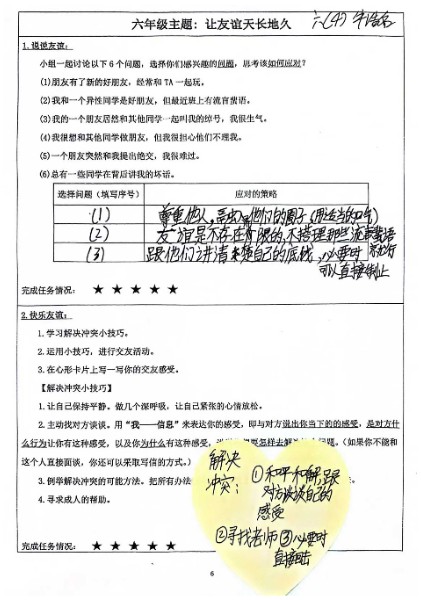 六年级主题：让友谊天长地久
六(4)
1.说说友谊：
小组一起讨论以下6个问题，选择你们感兴趣的问题，思考该如何应对？
(1)朋友有了新的好朋友，经常和TA一起玩。
(2)我和一个异性同学是好朋友，但最近班上有流言蜚语。
(3)我的一个朋友居然和其他同学一起叫我的绰号，我很生气。
(4)我很想和其他同学做朋友，但我很担心他们不理我。
(5)一个朋友突然和我提出绝交，我很难过。
(6)总有一些同学在背后讲我的坏话。
选择问题（填写序号） 应对的策略
(1) 尊重他人，他们的圈子(用适当的口气)
(2) 友谊是不存在界限的，不搭理那些流言蜚语
(3) 跟他们讲清楚自己的底线，必要时
可以直接制止
完成任务情况： ★ ★ ★ ★ ★
2.快乐友谊：
1.学习解决冲突小技巧。
2.运用小技巧，进行交友活动。
3.在心形卡片上写一写你的交友感受。
【解决冲突小技巧】
1.让自己保持平静。做几个深呼吸，让自己紧张的心情放松。
2.主动找对方谈谈。用“我——信息”来表达你的感受，即与对方说出你当下的的感受，是对方什
么行为让你有这种感受，以及你为什么有这种感受，怎样去解决问题。（如果你不能和
这个人直接面谈，你还可以采取写信的方式。）
3.例举解决冲突的可能方法。把所有办法
4.寻求成人的帮助。
解决
冲突：
①和平和解，跟
对方谈谈自己的
感受
②寻找老师 ③必要时
直接
完成任务情况： ★ ★ ★ ★ ★
6